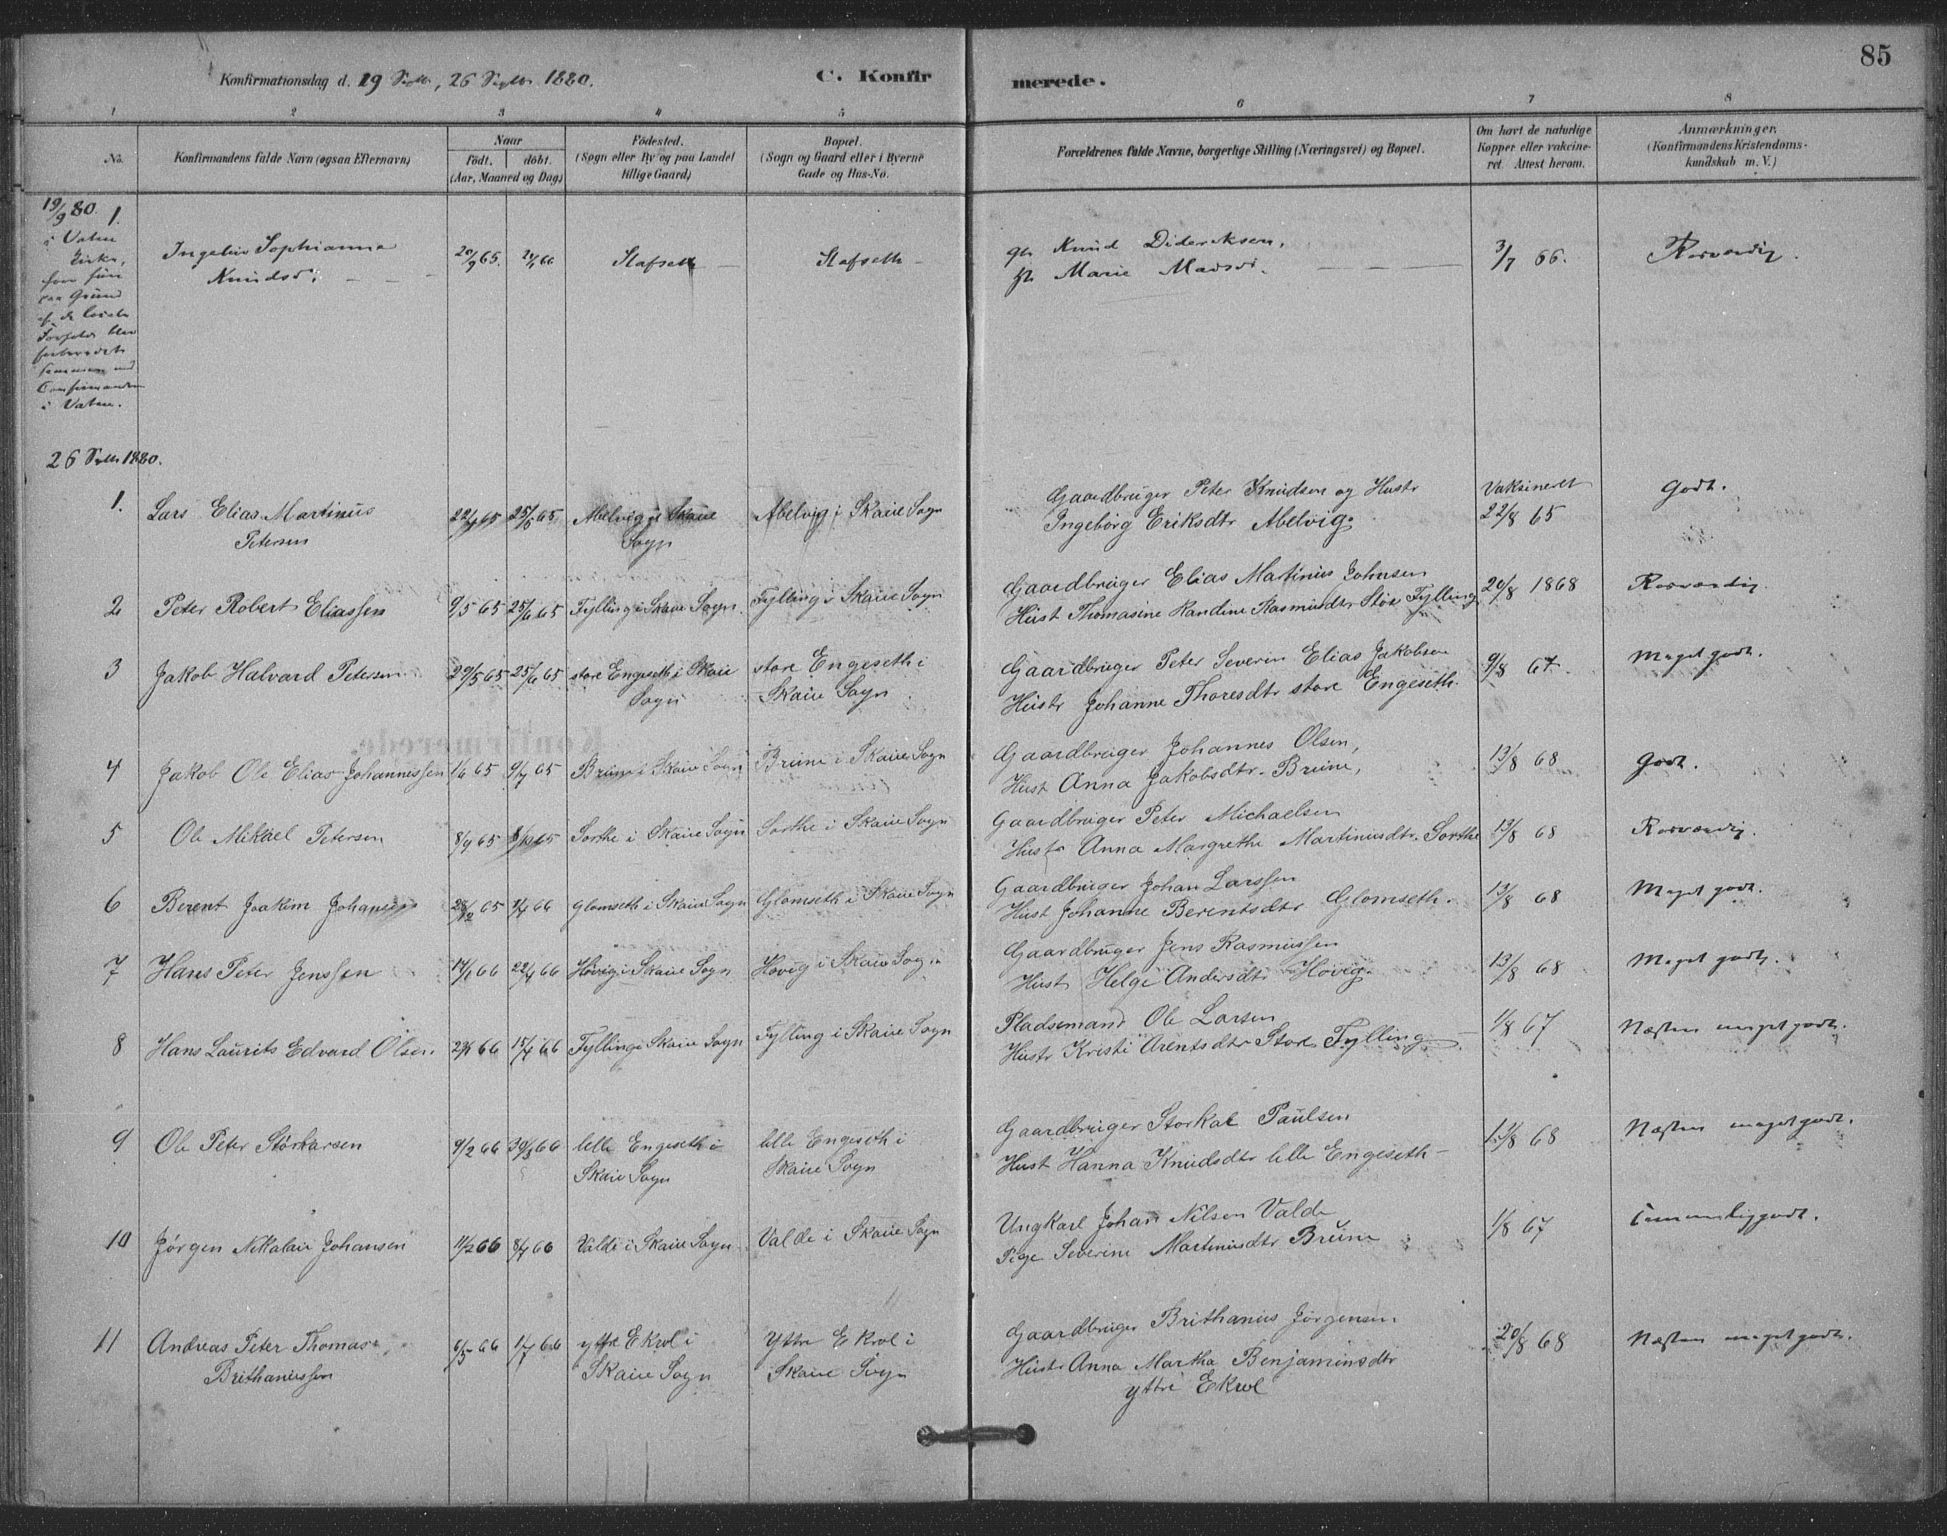 85
Konfirmationsdag d. 19 Septbr, 26 Septbr 1880. C. Konfirmerede.
1 2 3 4 5 6 7 8
No. Konfirmandens fulde Navn (ogsaa Efternavn) Naar födt. döbt. (Aar, Maaned og Dag) Födested. (Sogn eller By og paa Landet tillige Gaard) Bopæl. (Sogn og Gaard eller i Byerne Gade og Hus-No. Forældrenes fulde Navne, borgerlige Stilling (Næringsvei) og Bopæl. Om havt de naturlige Kopper eller vakcineret. Attest herom. Anmærkninger. (Konfirmandens Kristendomskundskab m. V.)
19/9 80. 1.
i Vatne
Kirke,
hvor hun
paa Grund
af
sammen med
Confirmanderne
i Vatne.
Ingeborg Sophianna 20/9 65. Slafseth Slafseth gb Knud Dideriksen, 3/7 66. Rosværdig.
Knudsd. Marie Madsd.
26 Septbr 1880.
1. Lars Elias Martinus 22/4 65 25/5 65 Abelvig i Skaue Abelvig i Skaue Sogn Gaardbruger Peter Knudsen og Hustr Vaksineret Godt.
Petersen Sogn Ingeborg Eriksdtr Abelvig. 22/8 65
2 Peter Robert Eliassen 9/5 65 25/6 65 Fylling i Skaue Sogn Fylling i Skaue Sogn Gaardbruger Elias Martinus Johnsen 20/8 1868 Rosværdig.
Hust Thomasine Randine Rasmusdtr Store Fylling
3 Jakob Halvard Petersen 29/5 65 25/6 65 store Engeseth i Skaue store Engeseth i Gaardbruger Peter Severin Elias Jakobsen 9/8 67. Meget godt.
Sogn Skaue Sogn Hustr Johanne Thoresdtr store Engeseth.
4 Jakob Ole Elias Johannessen 1/6 65 9/7 65 Brune i Skaue Sogn Brune i Skaue Sogn Gaardbruger Johannes Olsen, 13/8 68 Godt.
Hust Anna Jakobsdtr. Brune,
5 Ole Mikael Petersen 8/9 65 8/10 65 Sorthe i Skaue Sogn Sorthe i Skaue Sogn Gaardbruger Peter Michaelsen 13/8 68 Rosværdig.
Hustr Anna Margrethe Martinusdtr. Sorthe
6 Berent Joakim Johansen 28/12 65 1/4 66 Glomseth i Skaue Sogn Glomseth i Skaue Sogn Gaardbruger Johan Larssen 13/8 68 Meget godt.
Hust Johanne Berentsdtr Glomseth.
7 Hans Peter Jenssen 14/1 66 22/4 66 Hovig i Skaue Sogn Hovig i Skaue Sogn Gaardbruger Jens Rasmussen 13/8 68 Meget godt.
Hust Helge Andersdtr Hovig.
8 Hans Laurits Edvard Olsen 23/1 66 15/4 66 Fylling i Skaue Sogn Fylling i Skaue Sogn Pladsemand Ole Larsen 1/8 67 Næsten meget godt.
Hustr Kristi Arentsdtr Store Fylling
9 Ole Peter Störkarsen 9/2 66 30/3 66 lille Engeseth i lille Engeseth i Gaardbruger Storkal Paulsen 13/8 68 Næsten meget godt.
Skaue Sogn Skaue Sogn Hust Hanna Knudsdtr lille Engeseth
10 Jørgen Nikolai Johansen 11/2 66 8/4 66 Valde i Skaue Sogn Valde i Skaue Sogn Ungkarl Johan Nilsen Valde 1/8 67 Temmelig godt.
Pige Severine Martinusdtr Brune
11 Andreas Peter Thomas 6/5 66 1/7 66 yttre Ekrol i Yttre Ekrol i Gaardbruger Brithanius Jørgensen 20/8 68 Næsten meget godt.
Brithaniussen Skaue Sogn Skaue Sogn Hustr Anna Martha Benjaminsdtr
yttre Ekrol